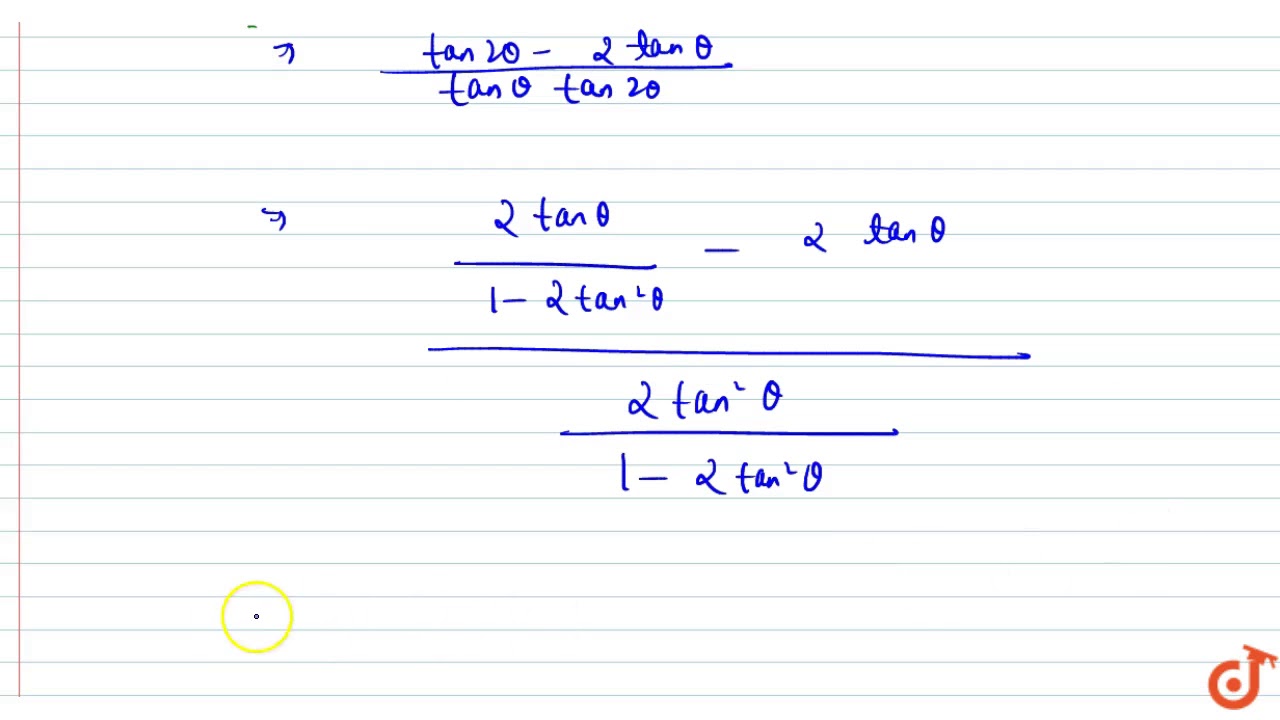 ⇒ tan 2θ - 2 tan θ
tan θ tan 2θ
⇒ 2 tan θ - 2 tan θ
1 - 2 tan² θ
2 tan² θ
1 - 2 tan² θ